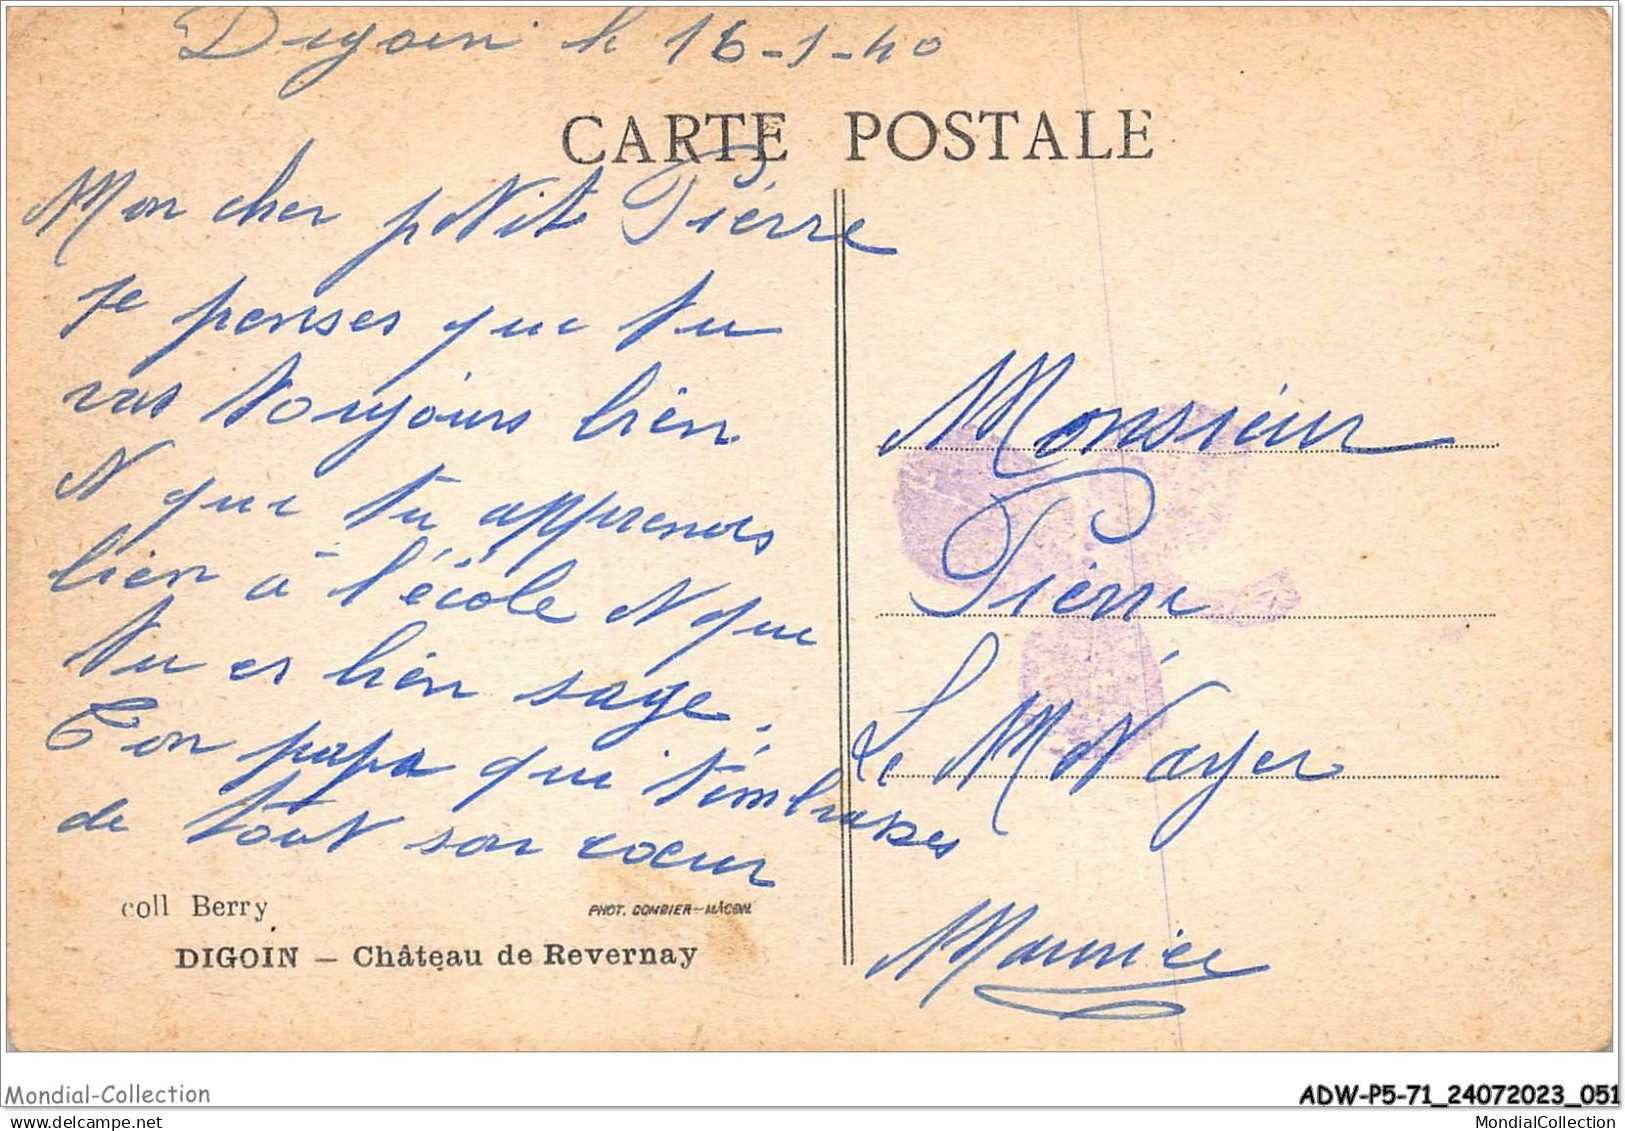 Digoin le 16-1-40
CARTE POSTALE
Mon cher petit Pierre
Je penses que tu
vas toujours bien
et que tu apprends
bien à l'école et que
tu es bien sage.
Ton papa qui t'embrasses
de tout son coeur
coll Berry
PHOT. COMBIER-MÂCON.
DIGOIN — Château de Revernay
Monsieur
Pierre
Le Métayer
Mondial-Collection
ADW-P5-71_24072023_051
Mondial-Collection
MondialCollection
MondialCollection